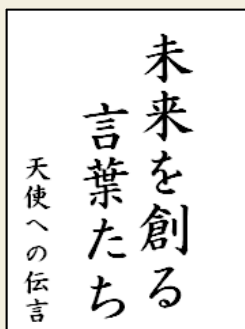 未来を創る
言葉たち
天使への伝言